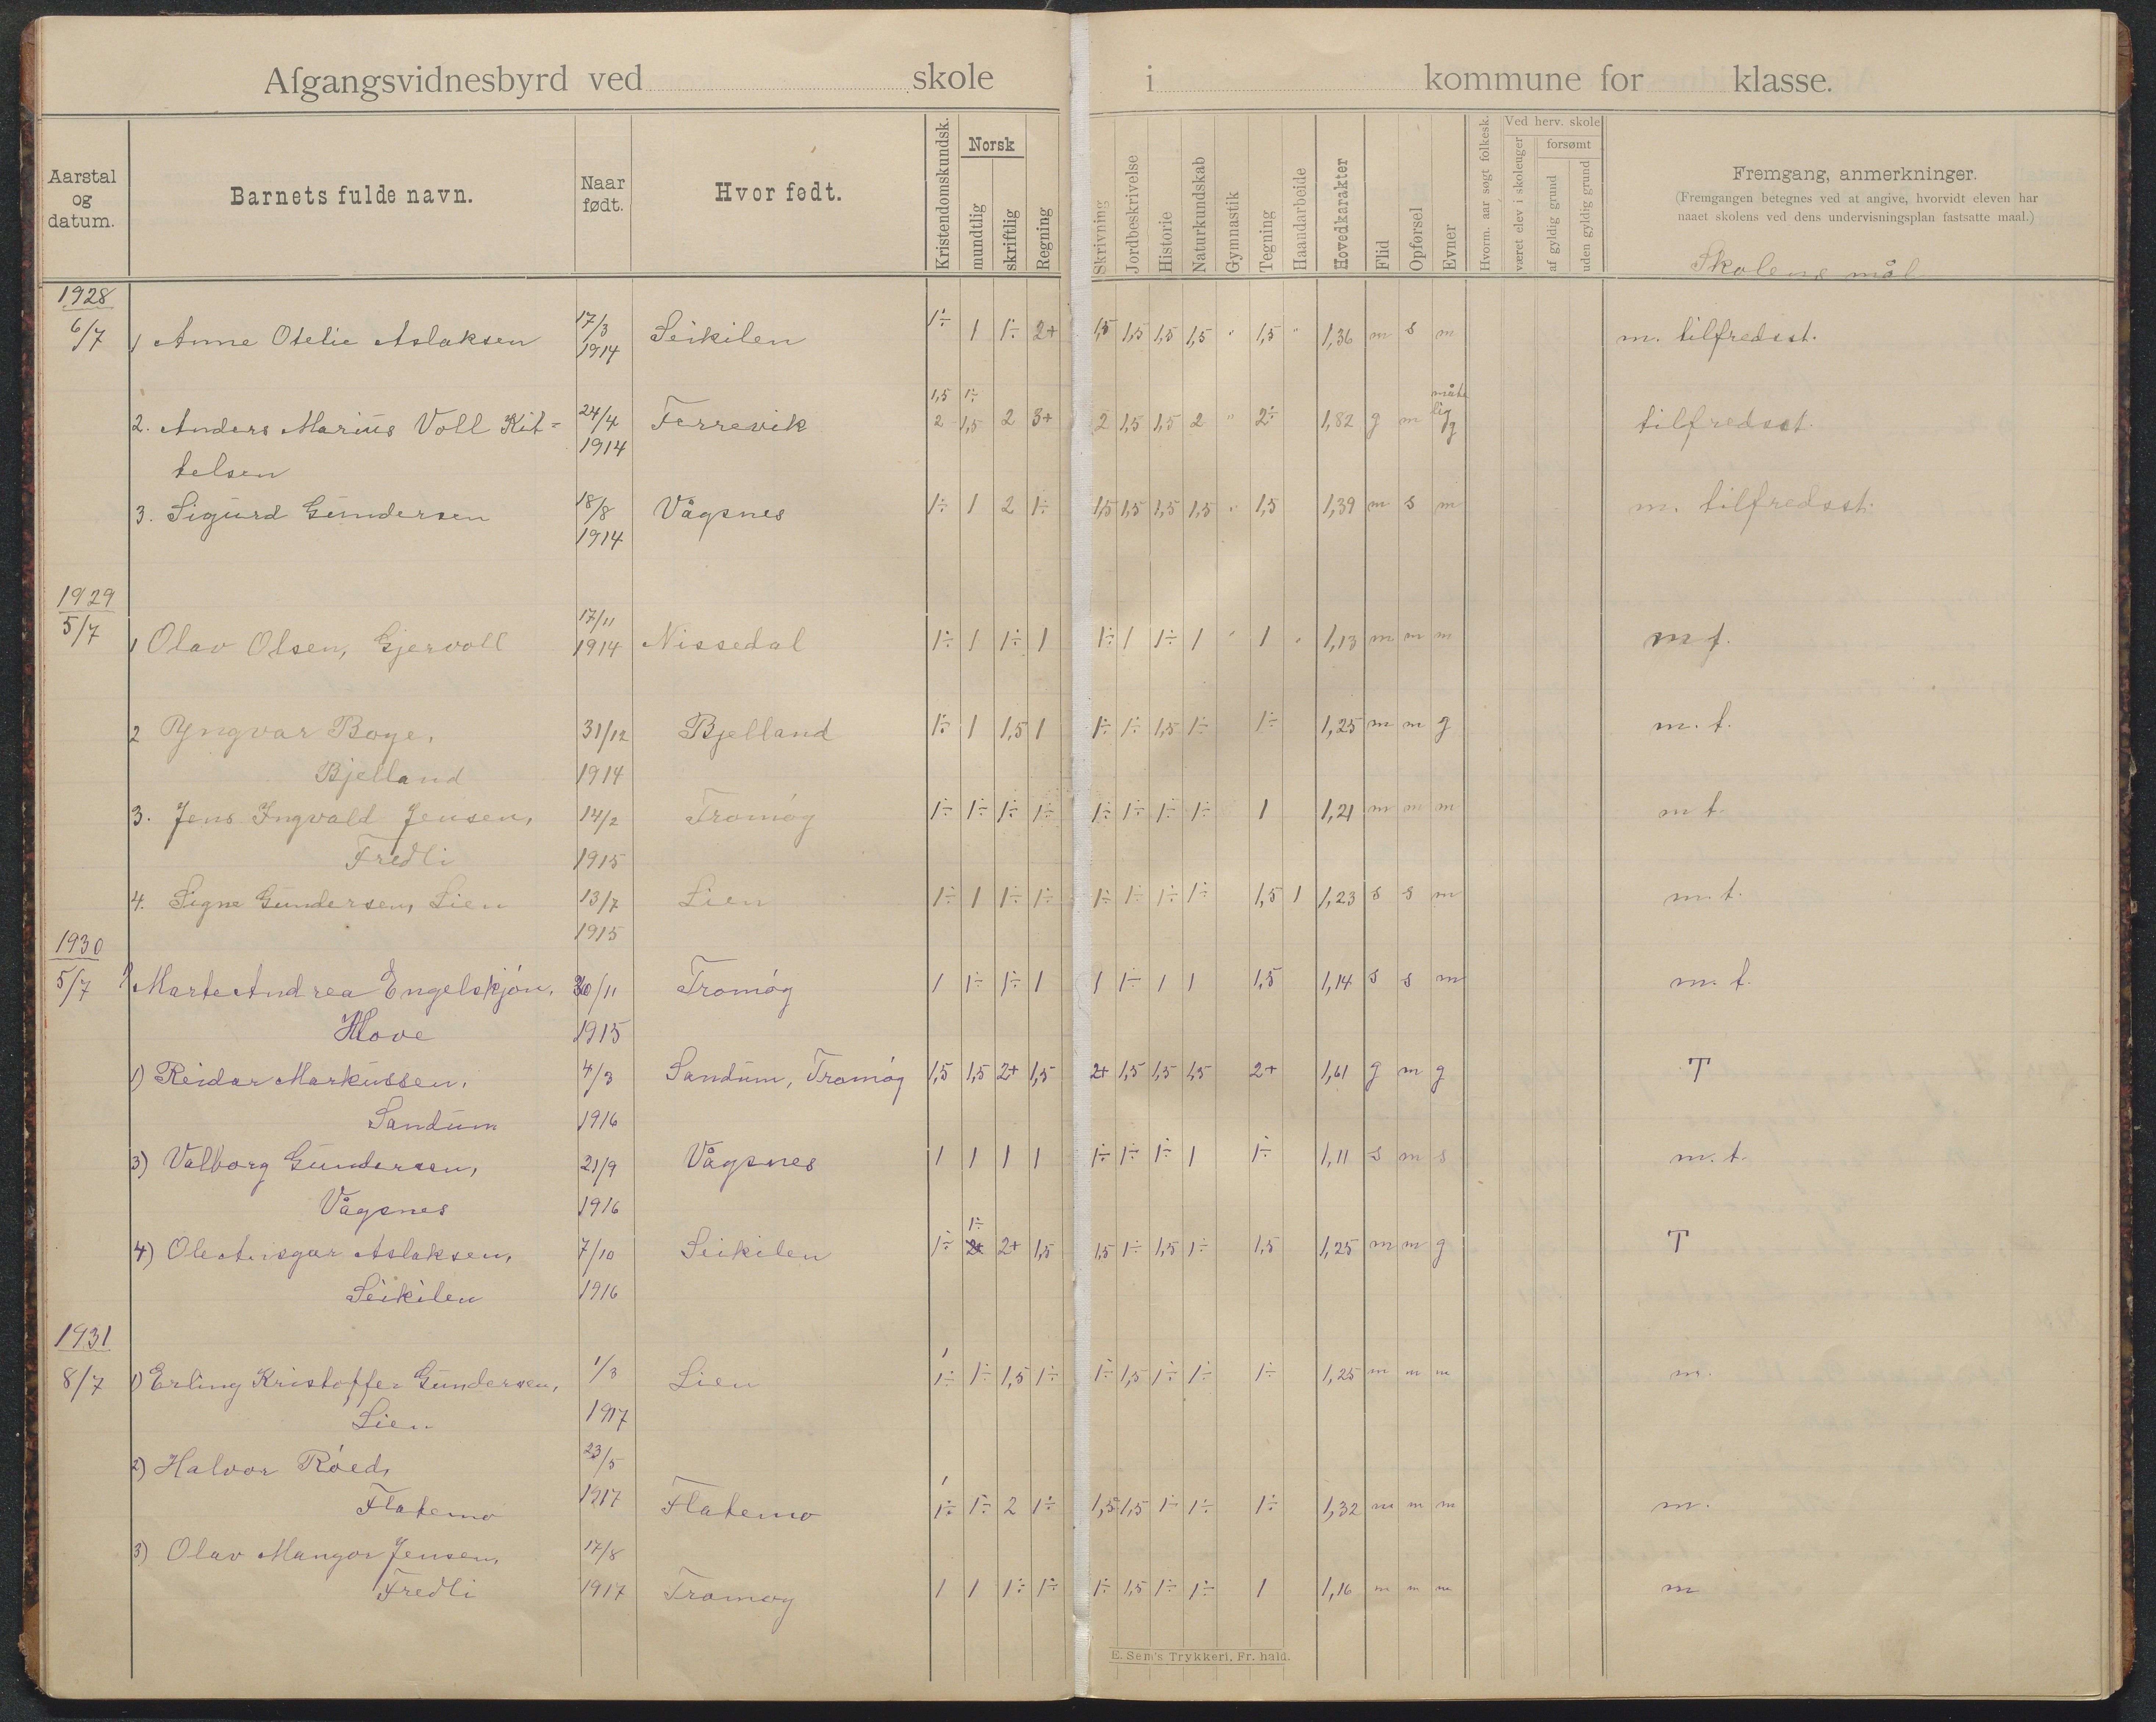 Afgangsvidnesbyrd ved skole i kommune for klasse.
Aarstal og datum.
Barnets fulde navn.
Naar født.
Hvor født.
Kristendomskundsk.
Norsk
mundtlig
skriftlig
Regning
Skrivning
Jordbeskrivelse
Historie
Naturkundskab
Gymnastik
Tegning
Haandarbeide
Hovedkarakter
Flid
Opførsel
Evner
Hvorm. aar søgt folkesk.
Ved herv. skole
været elev i skoleuger
forsømt
af gyldig grund
uden gyldig grund
Fremgang, anmerkninger.
(Fremgangen betegnes ved at angive, hvorvidt eleven har
naaet skolens ved dens undervisningsplan fastsatte maal.)
Skolens mål
1928
6/7 1 Anne Otelie Aslaksen 17/3 1914 Seikilen 1÷ 1 1÷ 2+ 1,5 1,5 1,5 1,5 " 1,5 " 1,36 m s m m. tilfredsst.
1,5 1÷ måte
2. Anders Marius Voll Kit= 24/4 1914 Færrevik 2 1,5 2 3+ 2 1,5 1,5 2 " 2÷ 1,82 g m lig g tilfredsst.
telsen
3. Sigurd Gundersen 18/8 1914 Vågsnes 1÷ 1 2 1÷ 1,5 1,5 1,5 1,5 " 1,5 1,39 m s m m. tilfredsst.
1929
5/7 1 Olav Olsen, Gjervoll 17/11 1914 Nissedal 1÷ 1 1÷ 1 1÷ 1 1÷ 1 " 1 " 1,13 m m m m t.
2 Yngvar Boye, 31/12 Bjelland 1÷ 1 1,5 1 1÷ 1÷ 1,5 1÷ 1÷ 1,25 m m g m. t.
Bjelland 1914
3. Jens Ingvald Jensen, 14/2 Tromøy 1÷ 1÷ 1÷ 1÷ 1÷ 1÷ 1÷ 1÷ 1 1,21 m m m m t.
Fredli 1915
4. Signe Gundersen, Lien 13/7 Lien 1÷ 1 1÷ 1÷ 1÷ 1÷ 1÷ 1÷ 1,5 1 1,23 s s m m. t.
1915
1930
5/7 1) Marte Andrea Engelskjøn, 30/11 Tromøy 1 1÷ 1÷ 1 1 1÷ 1 1 1,5 1,14 s s m m. t.
Hove 1915
1) Reidar Markussen, 4/3 Sandum, Tromøy 1,5 1,5 2+ 1,5 2+ 1,5 1,5 1,5 2+ 1,61 g m g T
Sandum 1916
3) Valborg Gundersen, 21/9 Vågsnes 1 1 1 1 1÷ 1÷ 1÷ 1 1÷ 1,11 s m s m. t.
Vågsnes 1916
1÷
4) Ole Ansgar Aslaksen, 7/10 Seikilen 1÷ 2+ 2+ 1,5 1,5 1÷ 1,5 1÷ 1,5 1,25 m m g T
Seikilen 1916
1931
8/7 1) Erling Kristoffer Gundersen, 1/3 Lien 1 1÷ 1÷ 1,5 1÷ 1÷ 1,5 1÷ 1÷ 1÷ 1,25 m m m m.
Lien 1917
2) Halvor Røed, 23/5
Flatemo 1917 Flatemo 1 1÷ 1÷ 2 1÷ 1,5 1,5 1÷ 1÷ 1÷ 1,32 m m m m.
3) Olav Mangor Jensen, 17/8
Fredli 1917 Tromøy 1 1 1÷ 1÷ 1÷ 1,5 1÷ 1÷ 1 1,16 m m m m
E. Sem's Trykkeri, Fr. hald.